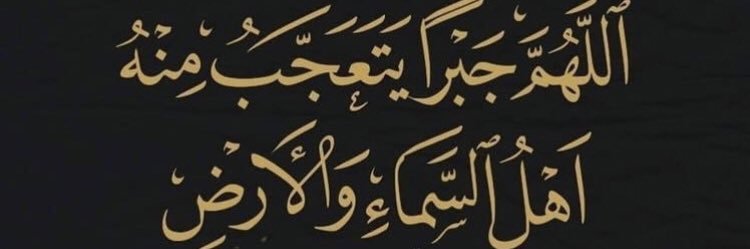 اللَّهُمَّ جَبْراً يَتَعَجَّبُ مِنْهُ
أَهْلُ السَّمَاءِ وَالْأَرْضِ